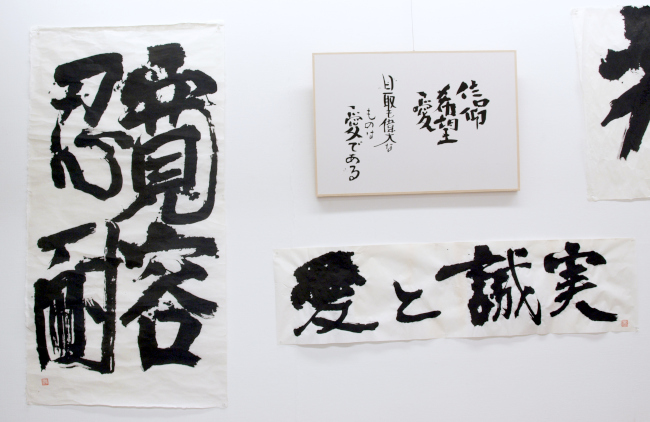 寛容
忍耐
信仰
希望
愛
最も偉大な
ものは
愛である
愛と誠実